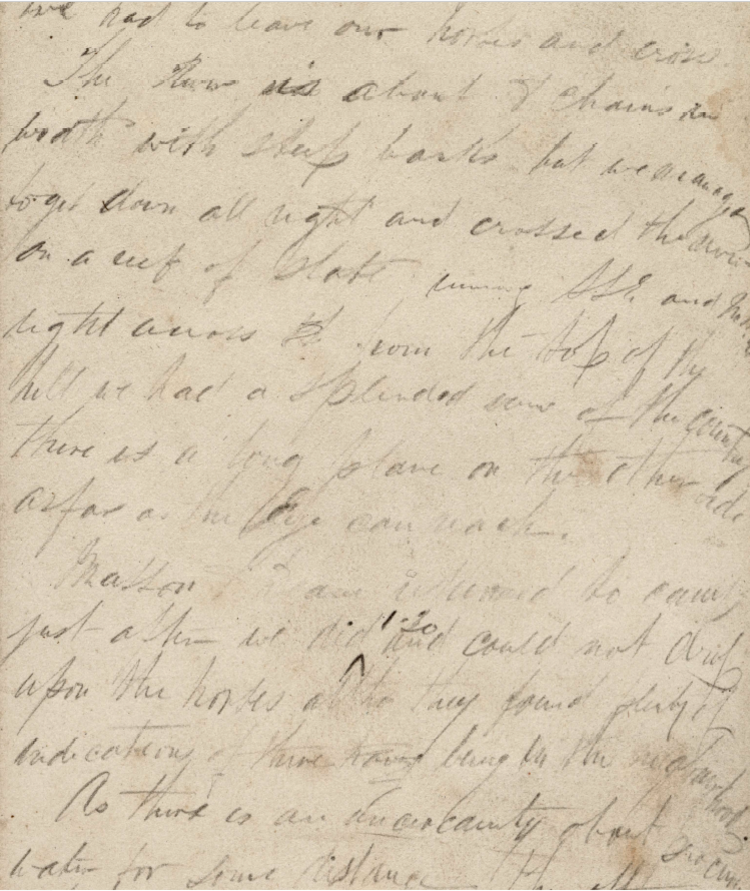 we had to leave our horses and cross.
The River is about 8 chains in
width with steep banks but we managed
to get down all right and crossed the river
on a reef of slate running SSE and
right across it from the top of the
hill we had a splended view of the country
there is a long plane on the other side
as far as the Eye can reach.
returned to camp
just after we did 1.30 and could not drop
upon the horses altho they found plenty of
indications of there having being in the neighbourhood.
As there is an uncertainty about
water for some distance